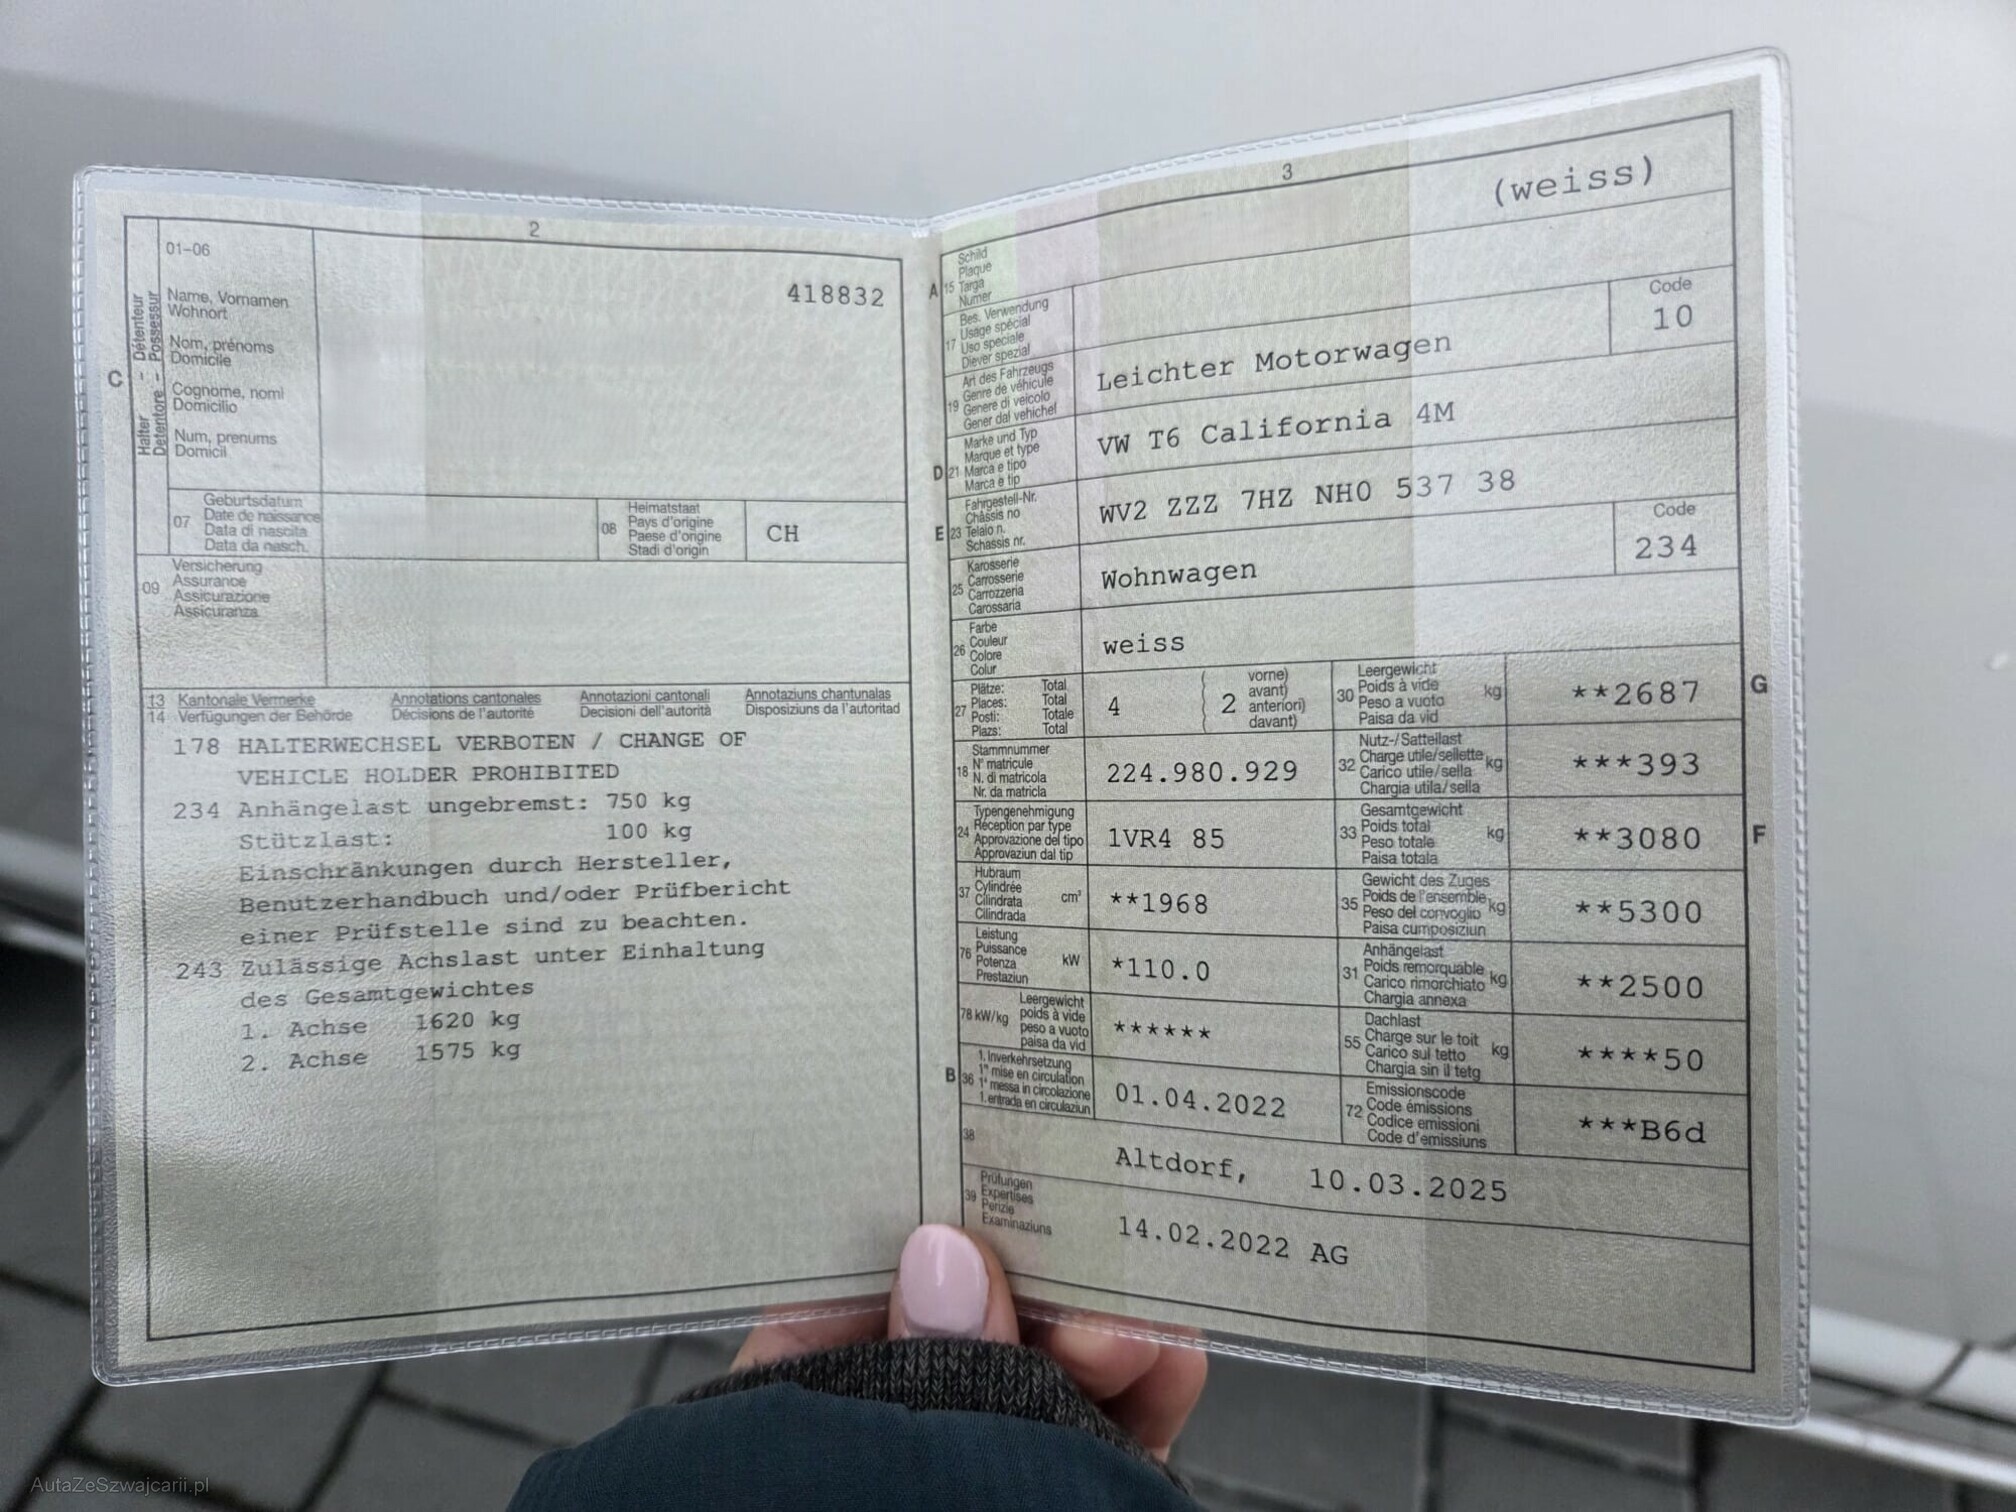 2
01-06
418832
C
Halter - Détenteur
Detentore - Possessur
Name, Vornamen
Wohnort
Nom, prénoms
Domicile
Cognome, nomi
Domicilio
Num, prenums
Domicil
07
Geburtsdatum
Date de naissance
Data di nascita
Data da nasch.
08
Heimatstaat
Pays d'origine
Paese d'origine
Stadi d'origin
CH
09
Versicherung
Assurance
Assicurazione
Assicuranza
13 Kantonale Vermerke Annotations cantonales Annotazioni cantonali Annotaziuns chantunalas
14 Verfügungen der Behörde Décisions de l'autorité Decisioni dell'autorità Disposiziuns da l'autoritad
178 HALTERWECHSEL VERBOTEN / CHANGE OF
VEHICLE HOLDER PROHIBITED
234 Anhängelast ungebremst: 750 kg
Stützlast: 100 kg
Einschränkungen durch Hersteller,
Benutzerhandbuch und/oder Prüfbericht
einer Prüfstelle sind zu beachten.
243 Zulässige Achslast unter Einhaltung
des Gesamtgewichtes
1. Achse 1620 kg
2. Achse 1575 kg
3
(weiss)
A 15
Schild
Plaque
Targa
Numer
17
Bes. Verwendung
Usage spécial
Uso speciale
Diever spezial
19
Art des Fahrzeugs
Genre de véhicule
Genere di veicolo
Gener dal vehichel
Leichter Motorwagen
Code
10
D 21
Marke und Typ
Marque et type
Marca e tipo
Marca e tip
VW T6 California 4M
E 23
Fahrgestell-Nr.
Châssis no
Telaio n.
Schassis nr.
WV2 ZZZ 7HZ NH0 537 38
25
Karosserie
Carrosserie
Carrozzeria
Carossaria
Wohnwagen
Code
234
26
Farbe
Couleur
Colore
Colur
weiss
27
Plätze: Total
Places: Total
Posti: Totale
Plazs: Total
4
2
vorne)
avant)
anteriori)
davant)
30
Leergewicht
Poids à vide
Peso a vuoto
Paisa da vid
kg
**2687
G
18
Stammnummer
N° matricule
N. di matricola
Nr. da matricla
224.980.929
32
Nutz-/Sattellast
Charge utile/sellette
Carico utile/sella
Chargia utila/sella
kg
***393
24
Typengenehmigung
Réception par type
Approvazione del tipo
Approvaziun dal tip
1VR4 85
33
Gesamtgewicht
Poids total
Peso totale
Paisa totala
kg
**3080
F
37
Hubraum
Cylindrée
Cilindrata
Cilindrada
cm³
**1968
35
Gewicht des Zuges
Poids de l'ensemble
Peso del convoglio
Paisa cumposiziun
kg
**5300
76
Leistung
Puissance
Potenza
Prestaziun
kW
*110.0
31
Anhängelast
Poids remorquable
Carico rimorchiato
Chargia annexa
kg
**2500
78 kW/kg
Leergewicht
poids à vide
peso a vuoto
paisa da vid
******
55
Dachlast
Charge sur le toit
Carico sul tetto
Chargia sin il tetg
kg
****50
B 36
1. Inverkehrsetzung
1re mise en circulation
1a messa in circolazione
1. entrada en circulaziun
01.04.2022
72
Emissionscode
Code émissions
Codice emissioni
Code d'emissiuns
***B6d
38
Altdorf, 10.03.2025
39
Prüfungen
Expertises
Perizie
Examinaziuns
14.02.2022 AG
AutaZeSzwajcarii.pl